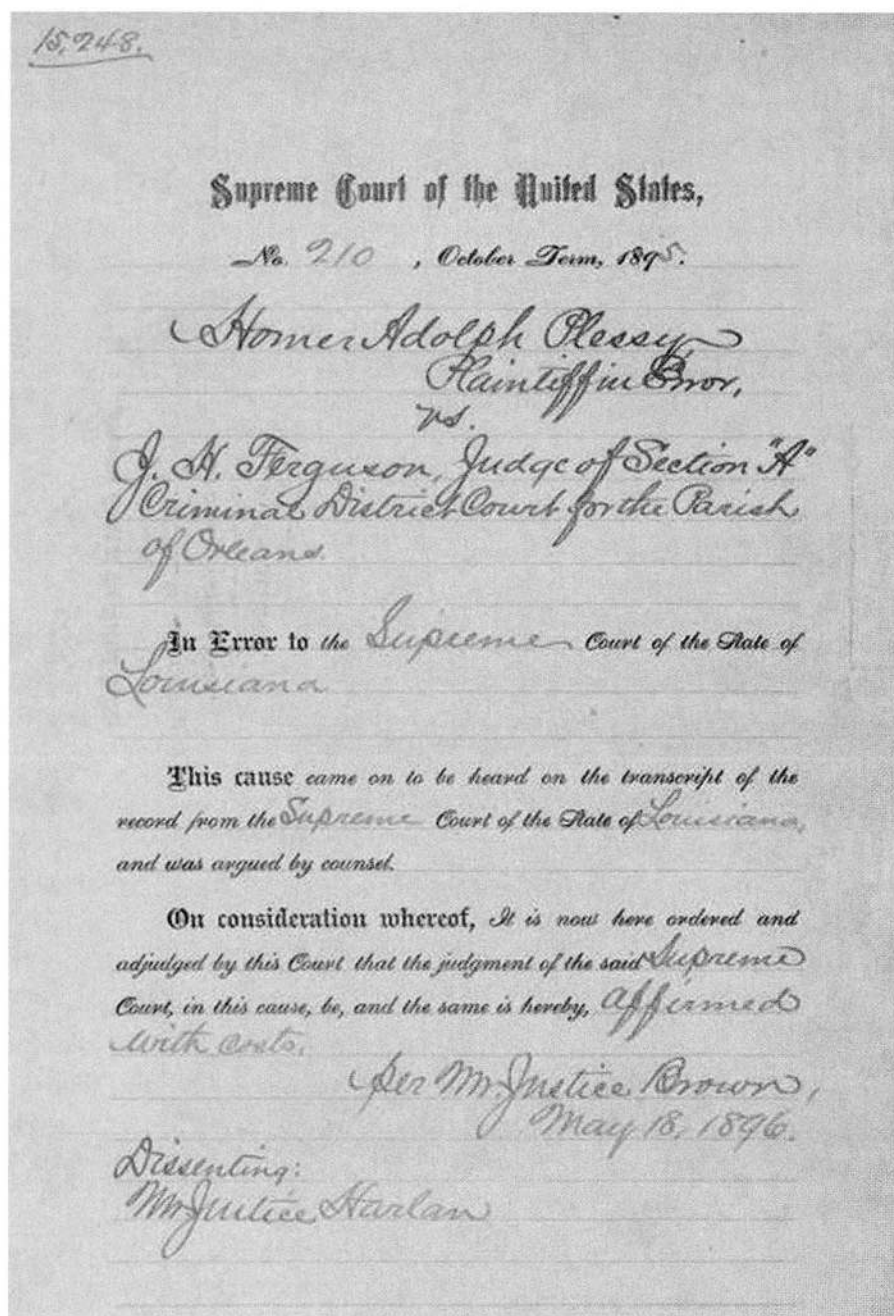 15,248.
Supreme Court of the United States,
No. 210, October Term, 1895.
Homer Adolph Plessy,
Plaintiff in Error,
vs.
J. H. Ferguson, Judge of Section "A"
Criminal District Court for the Parish
of Orleans.
In Error to the Supreme Court of the State of
Louisiana
This cause came on to be heard on the transcript of the
record from the Supreme Court of the State of Louisiana,
and was argued by counsel.
On consideration whereof, It is now here ordered and
adjudged by this Court that the judgment of the said Supreme
Court, in this cause, be, and the same is hereby, affirmed
with costs.
per Mr. Justice Brown,
May 18, 1896.
Dissenting:
Mr. Justice Harlan